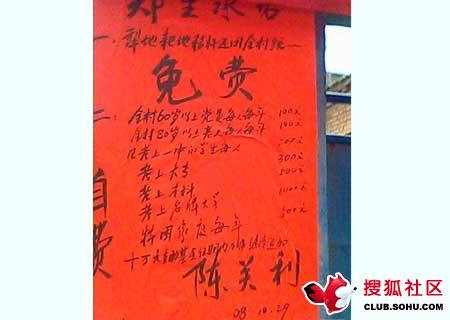 一、犁地耙地
免费
二：全村60岁以上党员每人每年 100元
全村80岁以上老人每人每年 100元
凡考上一中的学生每人 200元
考上大专 300元
考上本科 500元
考上名牌大学 1000元
特困家庭每年 500元
十万元
陈关利
08.10.29
自
费
搜狐社区
CLUB.SOHU.COM